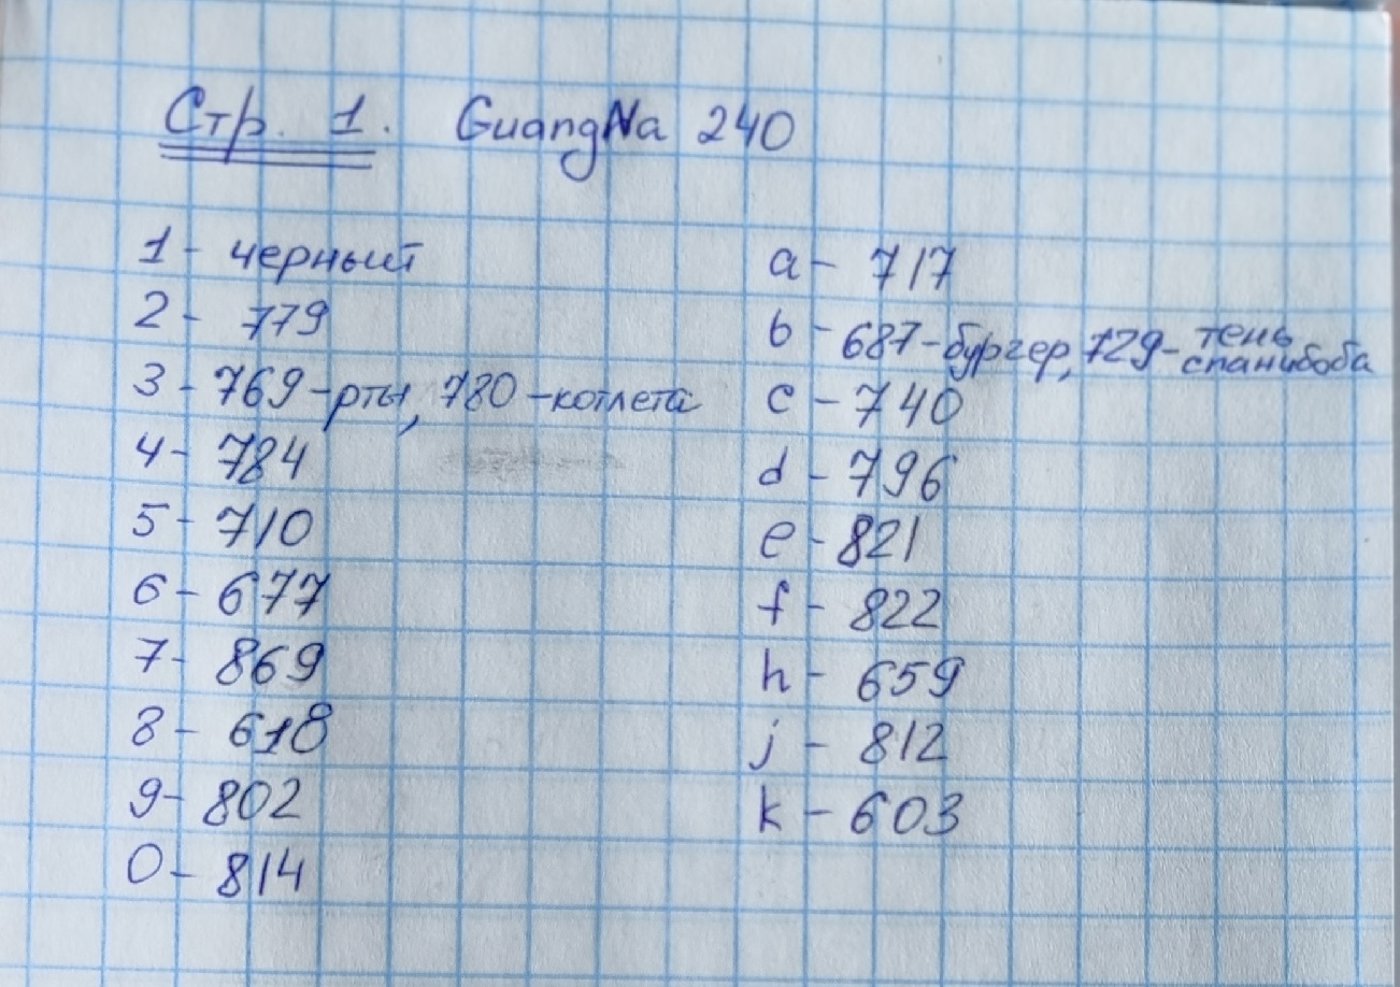 Стр. 1. GuangNa 240
1 - черный
2 - 779
3 - 769 - рты, 780 - котлета
4 - 784
5 - 710
6 - 677
7 - 869
8 - 618
9 - 802
0 - 814
a - 717
b - 687 - бургер, 729 - тень спанчбоба
c - 740
d - 796
e - 821
f - 822
h - 659
j - 812
k - 603